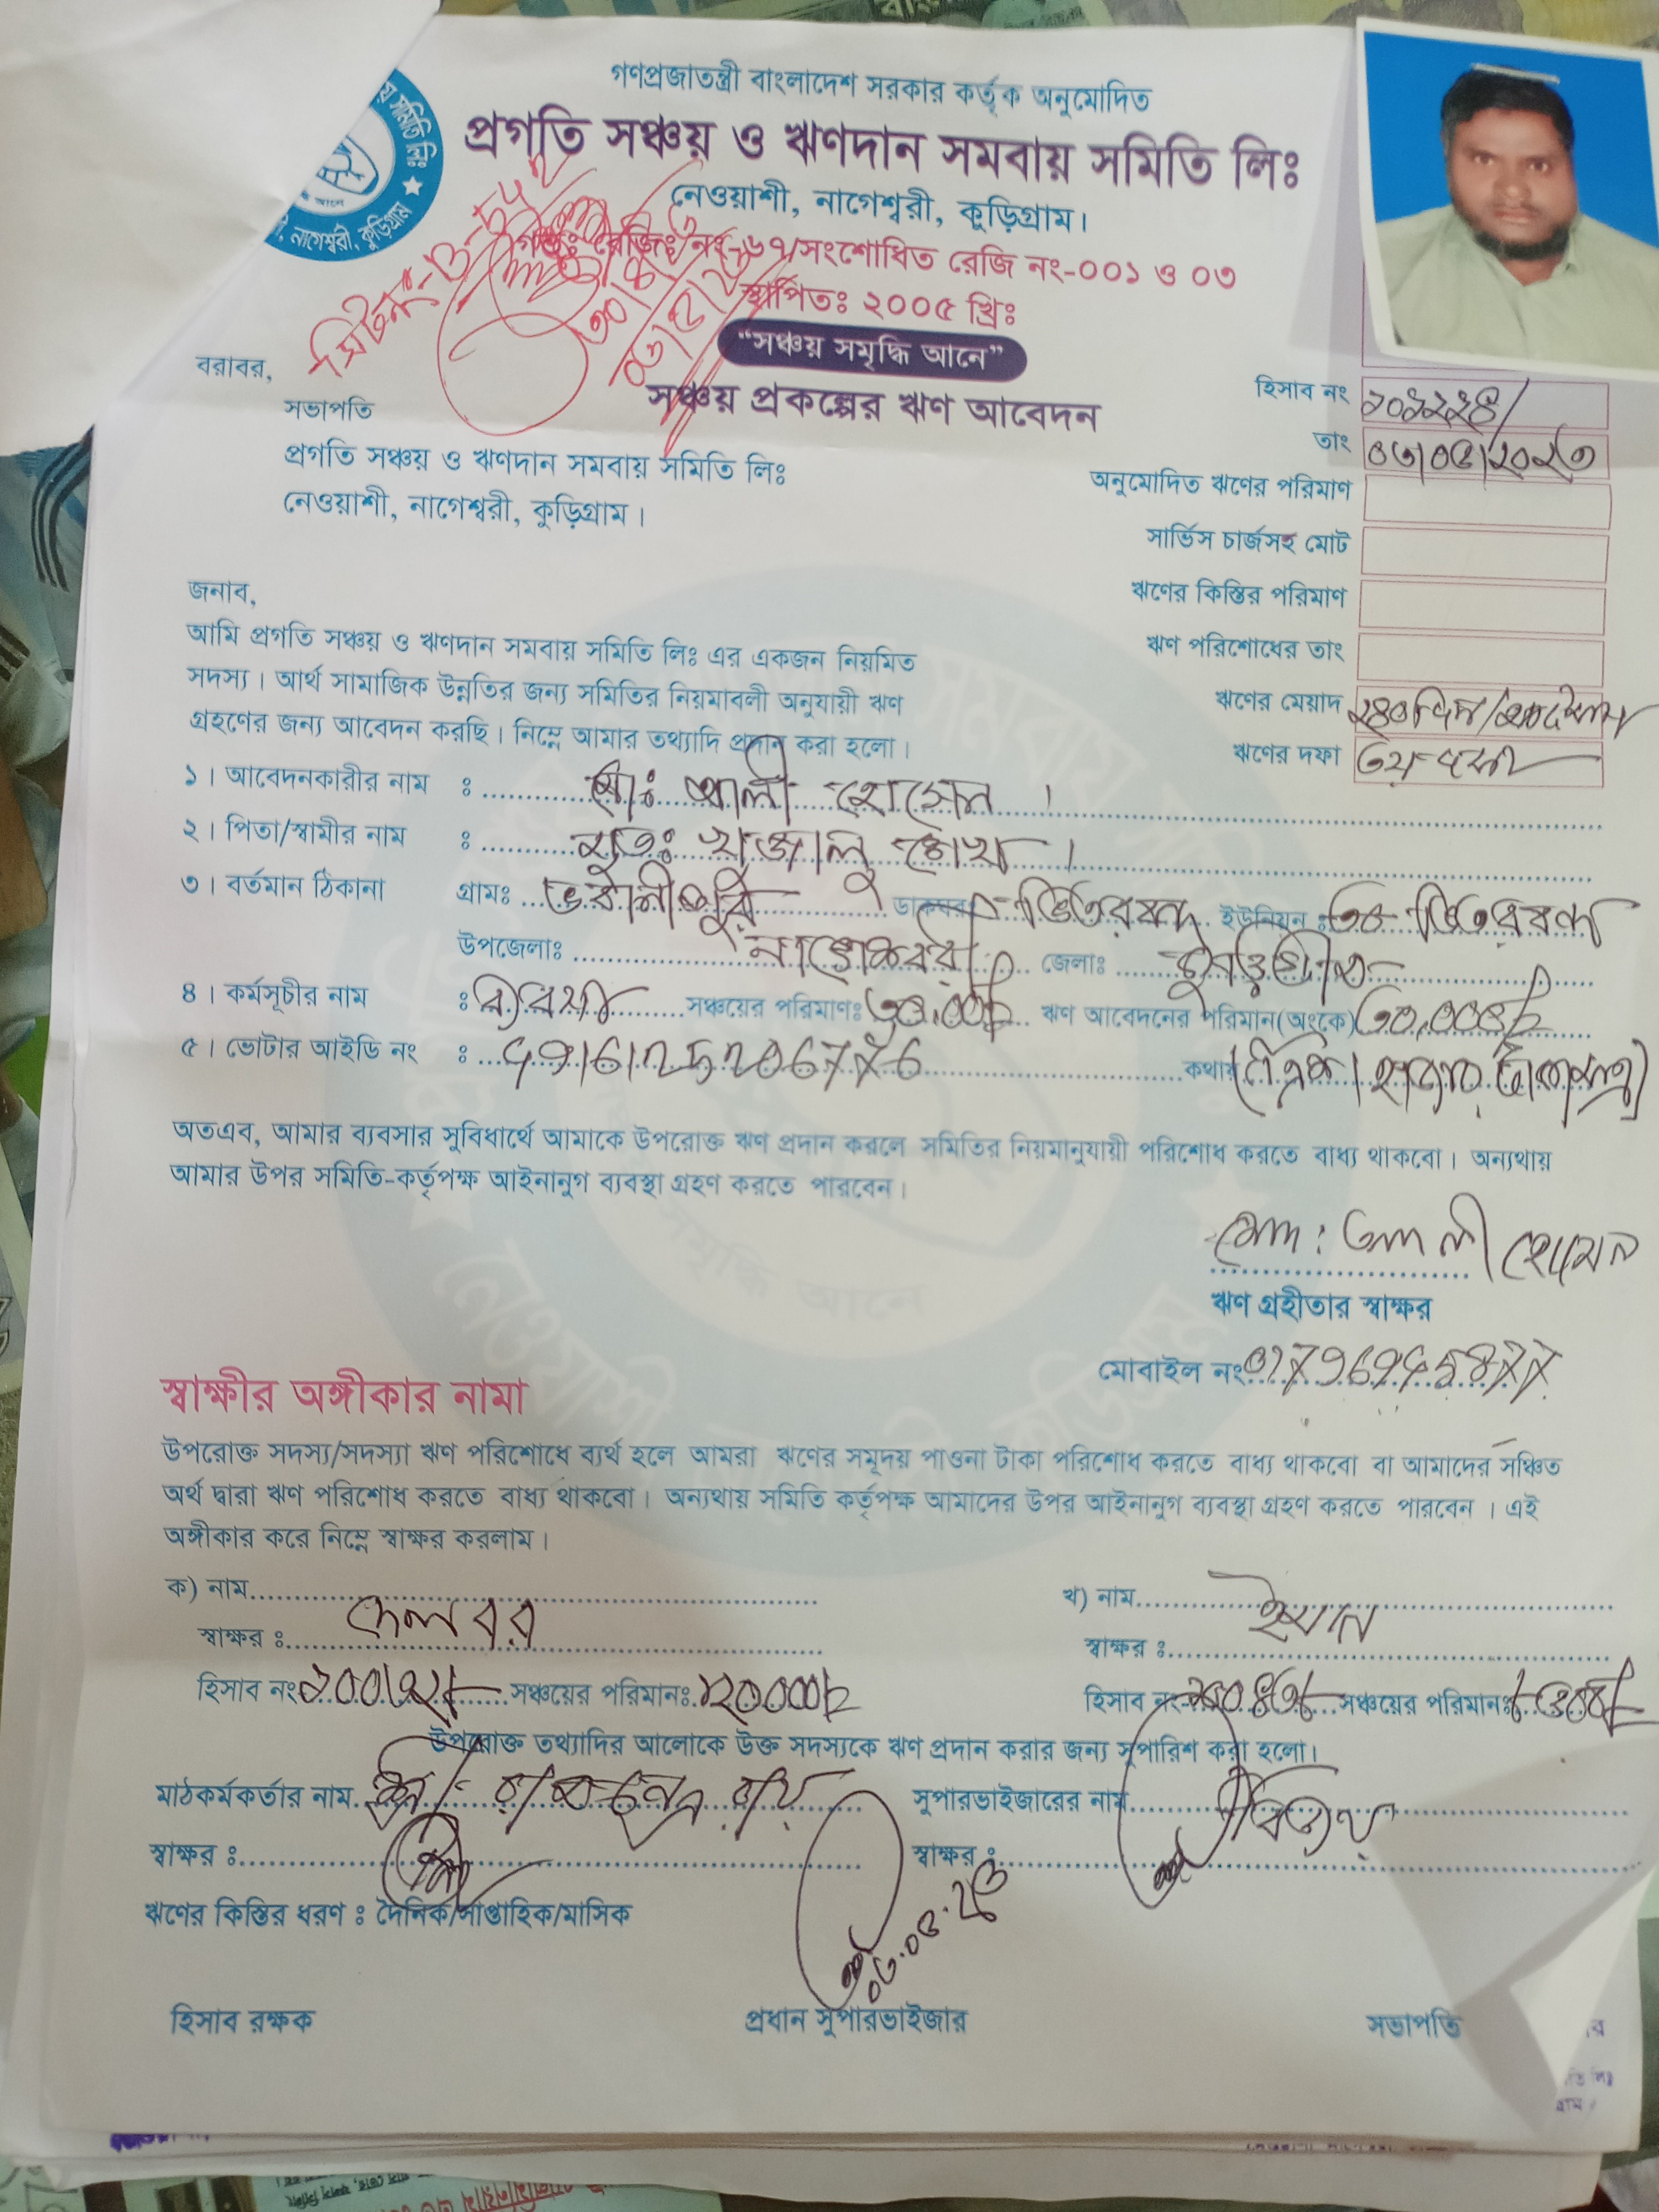 য় সমিতি লিঃ
, নাগেশ্বরী, কুড়িগ্রাম
আনে
গণপ্রজাতন্ত্রী বাংলাদেশ সরকার কর্তৃক অনুমোদিত
প্রগতি সঞ্চয় ও ঋণদান সমবায় সমিতি লিঃ
নেওয়াশী, নাগেশ্বরী, কুড়িগ্রাম।
গভঃ রেজিঃ নং-৬৭/সংশোধিত রেজি নং-০০১ ও ০৩
স্থাপিতঃ ২০০৫ খ্রিঃ
“সঞ্চয় সমৃদ্ধি আনে”
সঞ্চয় প্রকল্পের ঋণ আবেদন
বরাবর,
সভাপতি
প্রগতি সঞ্চয় ও ঋণদান সমবায় সমিতি লিঃ
নেওয়াশী, নাগেশ্বরী, কুড়িগ্রাম।
হিসাব নং
তাং ০৩/০৫/২০২৩
অনুমোদিত ঋণের পরিমাণ
সার্ভিস চার্জসহ মোট
ঋণের কিস্তির পরিমাণ
ঋণ পরিশোধের তাং
ঋণের মেয়াদ ২৪০দিন/
ঋণের দফা ৩য় দফা
জনাব,
আমি প্রগতি সঞ্চয় ও ঋণদান সমবায় সমিতি লিঃ এর একজন নিয়মিত
সদস্য। আর্থ সামাজিক উন্নতির জন্য সমিতির নিয়মাবলী অনুযায়ী ঋণ
গ্রহণের জন্য আবেদন করছি। নিম্নে আমার তথ্যাদি প্রদান করা হলো।
১। আবেদনকারীর নাম : মোঃ আলী হোসেন।
২। পিতা/স্বামীর নাম : মৃতঃ শেখ।
৩। বর্তমান ঠিকানা গ্রামঃ ভবানীপুর ডাকঘর ভিতরবন্দ ইউনিয়ন : ভিতরবন্দ
উপজেলাঃ নাগেশ্বরী জেলাঃ কুড়িগ্রাম
৪। কর্মসূচীর নাম : সঞ্চয়ের পরিমাণঃ ঋণ আবেদনের পরিমান(অংকে) ৩০,০০০/-
৫। ভোটার আইডি নং : কথায় (ত্রিশ হাজার টাকা মাত্র)
অতএব, আমার ব্যবসার সুবিধার্থে আমাকে উপরোক্ত ঋণ প্রদান করলে সমিতির নিয়মানুযায়ী পরিশোধ করতে বাধ্য থাকবো। অন্যথায়
আমার উপর সমিতি-কর্তৃপক্ষ আইনানুগ ব্যবস্থা গ্রহণ করতে পারবেন।
মোঃ আলী হোসেন
ঋণ গ্রহীতার স্বাক্ষর
মোবাইল নং
স্বাক্ষীর অঙ্গীকার নামা
উপরোক্ত সদস্য/সদস্যা ঋণ পরিশোধে ব্যর্থ হলে আমরা ঋণের সমূদয় পাওনা টাকা পরিশোধ করতে বাধ্য থাকবো বা আমাদের সঞ্চিত
অর্থ দ্বারা ঋণ পরিশোধ করতে বাধ্য থাকবো। অন্যথায় সমিতি কর্তৃপক্ষ আমাদের উপর আইনানুগ ব্যবস্থা গ্রহণ করতে পারবেন । এই
অঙ্গীকার করে নিম্নে স্বাক্ষর করলাম।
ক) নাম খ) নাম
স্বাক্ষর : দেলবর স্বাক্ষর : ইমান
হিসাব নং সঞ্চয়ের পরিমানঃ ১২০০০/- হিসাব নং সঞ্চয়ের পরিমানঃ
উপরোক্ত তথ্যাদির আলোকে উক্ত সদস্যকে ঋণ প্রদান করার জন্য সুপারিশ করা হলো।
মাঠকর্মকর্তার নাম সুপারভাইজারের নাম
স্বাক্ষর : স্বাক্ষর :
ঋণের কিস্তির ধরণ : দৈনিক/সাপ্তাহিক/মাসিক
০৩.০৫.২৩
হিসাব রক্ষক প্রধান সুপারভাইজার সভাপতি